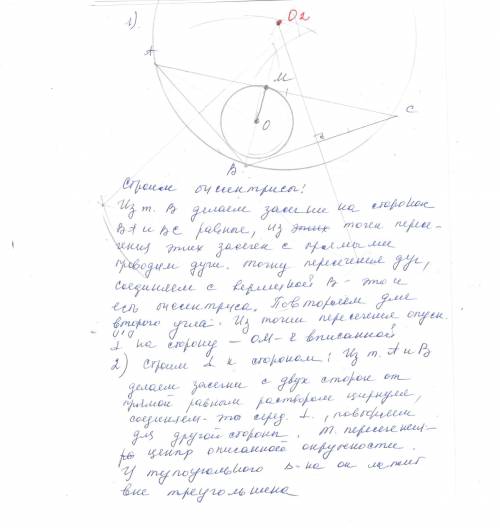 1).
O2
A
M
C
O
B
Строим биссектрисы!
Из т. В делаем засечки на сторонах
ВА и ВС равные, из этих точек пересе-
чения этих засечек с прямыми
проводим дуги. точку пересечения дуг,
соединяем с вершиной В - это и
есть биссектриса. Повторяем для
второго угла. Из точки пересечения опуск.
⊥ на сторону - ОМ - r вписанной
2) Строим ⊥ к сторонам! Из т. А и В
делаем засечки с двух сторон от
прямой равным раствором циркуля,
соединяем - это серед. ⊥, повторяем
для другой стороны. Т. пересечения -
центр описанной окружности.
У тупоугольного Δ-на он лежит
вне треугольника